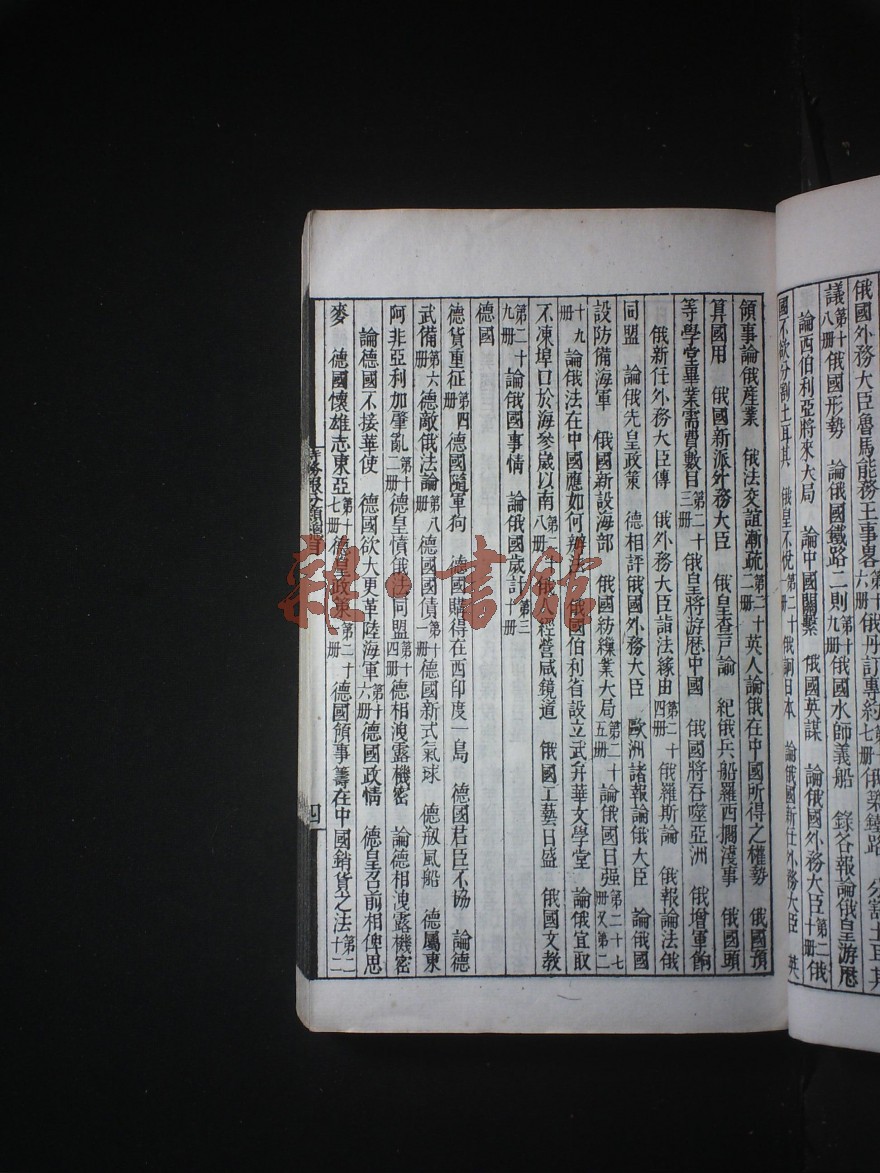 俄國外務大臣魯馬能務王事畧 第十六册 俄丹訂專約 七册 俄築鐵路 分割土耳其
議 第十八册 俄國形勢 論俄國鐵路二則 第十九册 俄國水師義船 錄各報論俄皇游歷
論西伯利亞將來大局 論中國關繫 俄國英謀 論俄國外務大臣 第二十册 俄
國不欲分割土耳其 俄皇不悅 第二十一册 俄嗣日本 論俄國新任外務大臣 英
領事論俄產業 俄法交誼漸疏 第二十二册 英人論俄在中國所得之權勢 俄國預
算國用 俄國新派外務大臣 俄皇查戸論 紀俄兵船羅西擱淺事 俄國頭
等學堂畢業需費數目 第二十三册 俄皇將游歷中國 俄國將吞噬亞洲 俄增軍餉
俄新任外務大臣傳 俄外務大臣詣法緣由 第二十四册 俄羅斯論 俄報論法俄
同盟 論俄先皇政策 德相評俄國外務大臣 歐洲諸報論俄大臣 論俄國
設防備海軍 俄國新設海部 俄國紡織業大局 第二十五册 論俄國日强 第二十七册又第二
十九册 論俄法在中國應如何辦法 俄國伯利省設立武弁華文學堂 論俄宜取
不凍埠口於海參崴以南 第二十八册 俄人經營咸鏡道 俄國工藝日盛 俄國文教
第二十九册 論俄國事情 論俄國歲計 第三十册
德國
德貨重征 第四册 德國隨軍狗 德國購得在西印度一島 德國君臣不協 論德
武備 第六册 德敵俄法論 第八册 德國國債 第十一册 德國新式氣球 德叙風船 德屬東
阿非亞利加肇亂 第十二册 德皇憤俄法同盟 第十四册 德相洩露機密 論德相洩露機密
論德國不接華使 德國欲大更革陸海軍 第十六册 德國政情 德皇召前相俾思
麥 德國懷雄志東亞 第十七册 德皇政策 第二十册 德國領事籌在中國銷貨之法 第二十二
時務報分類總目
四
雜·書館